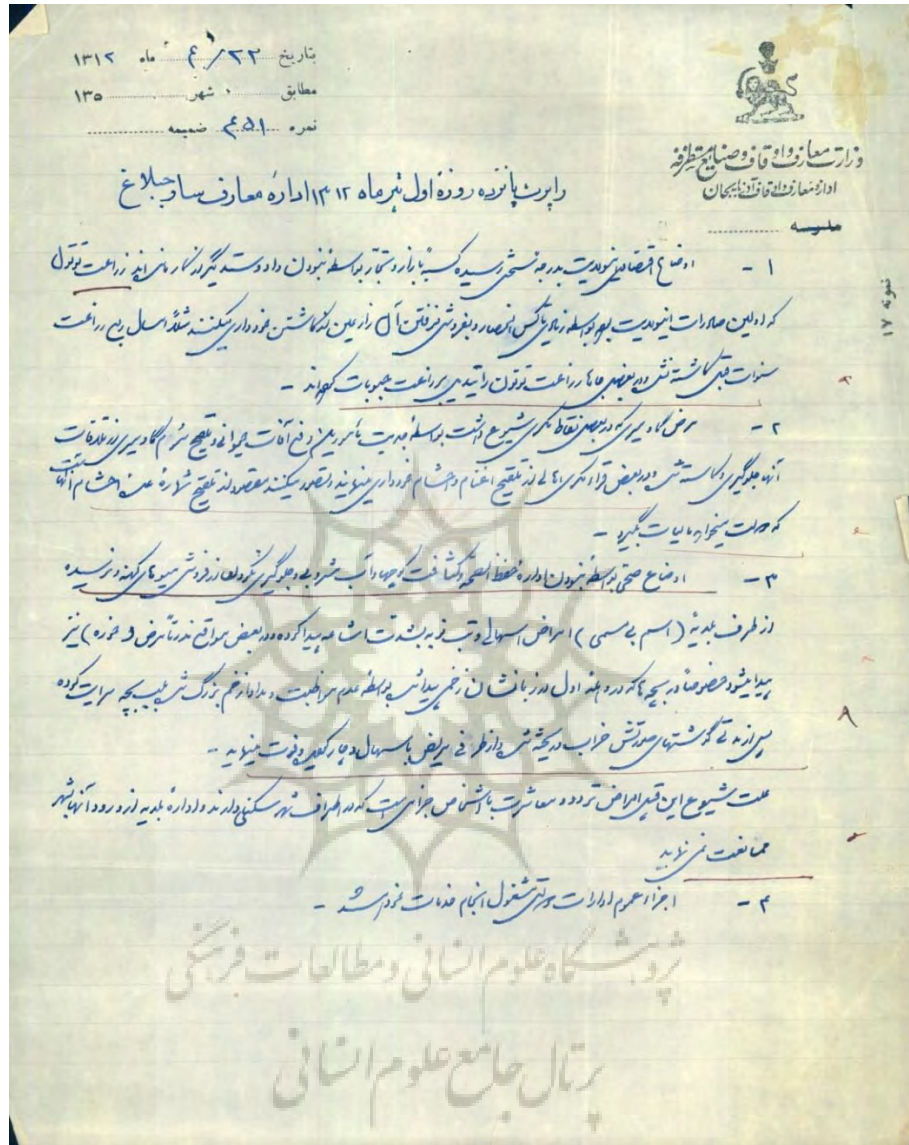 تاریخ ۲۲/۴ ماه ۱۳۱۲
مطابق شهر ۱۳۵
نمره ۴۵۱ ضمیمه
وزارت معارف و اوقاف و صنایع مستظرفه
اداره معارف و اوقاف آذربایجان
مدرسه
نمونه ۱۷
راپرت پانزده روزهٔ اول تیر ماه ۱۳۱۲ ادارهٔ معارف ساوجبلاغ
۱ - اوضاع اقتصادی اینولایت بدرجه سختی رسیده کسبه بازار و تجار بواسطه نبودن داد و ستد یگر در کنار مانده‌اند زراعت توتون
که اولین صادرات اینولایت بود بواسطه زیادی باکس انحصار و بفروش نرفتن آن زارعین از کاشتن خودداری میکنند مثلاً امسال ربع زراعت
سنوات قبل کاشته نشده و در بعضی جاها زراعت توتون را تبدیل بزراعت حبوبات کرده‌اند -
۲ - مرض گاومیری که در بعضی نقاط مکری شیوع داشت بواسطه جدیت مأمورین دفع آفات حیوانی و تلقیح سرم گاومیری از تلفات
آنها جلوگیری و کاسته شده و در بعضی قراء مکری اهالی از تلقیح اغنام و احشام خودداری مینمایند و تصور میکنند مقصود از تلقیح شمارهٔ عده احشام آنها است
که دولت میخواهد مالیات بگیرد -
۳ - اوضاع صحی بواسطهٔ نبودن ادارهٔ حفظ الصحه و کثافت کوچه‌ها و آب مشروبی و جلوگیری نکردن از فروش میوه‌های کهنه و نرسیده
از طرف بلدیه (اسم بی مسمی) امراض اسهالی و تب نوبه بشدت اشاعه پیدا کرده و در بعضی مواقع ندرتاً مرض (خوره) نیز
پیدا میشود خصوصاً در بچه‌ها که در وهلهٔ اول در زبانشان زخمی پیدا شده بواسطه عدم مواظبت و مداوا زخم بزرگ شده بلب بچه سرایت کرده
پس از مدتی گوشتهای صورتش خراب و ریخته شده و از طرفی مریض باسهال دچار گردیده و فوت مینماید -
علت شیوع این قبیل امراض تردد و معاشرت با اشخاص جزامی است که در اطراف شهر سکنی دارند و ادارهٔ بلدیه از ورود آنها بشهر
ممانعت نمی‌نماید
۴ - اجزاء عموم ادارات دولتی مشغول انجام خدمات خود میباشند -
پژوهشگاه علوم انسانی و مطالعات فرهنگی
پرتال جامع علوم انسانی